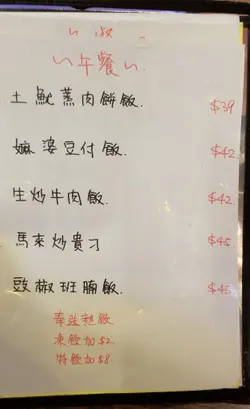 午餐
土魷蒸肉餅飯. $39
嫲婆豆付飯. $42
生炒牛肉飯. $42
馬來炒貴刁 $45
豉椒班腩飯. $45
奉送熱飲
凍飲加$2.
特飲加$8.